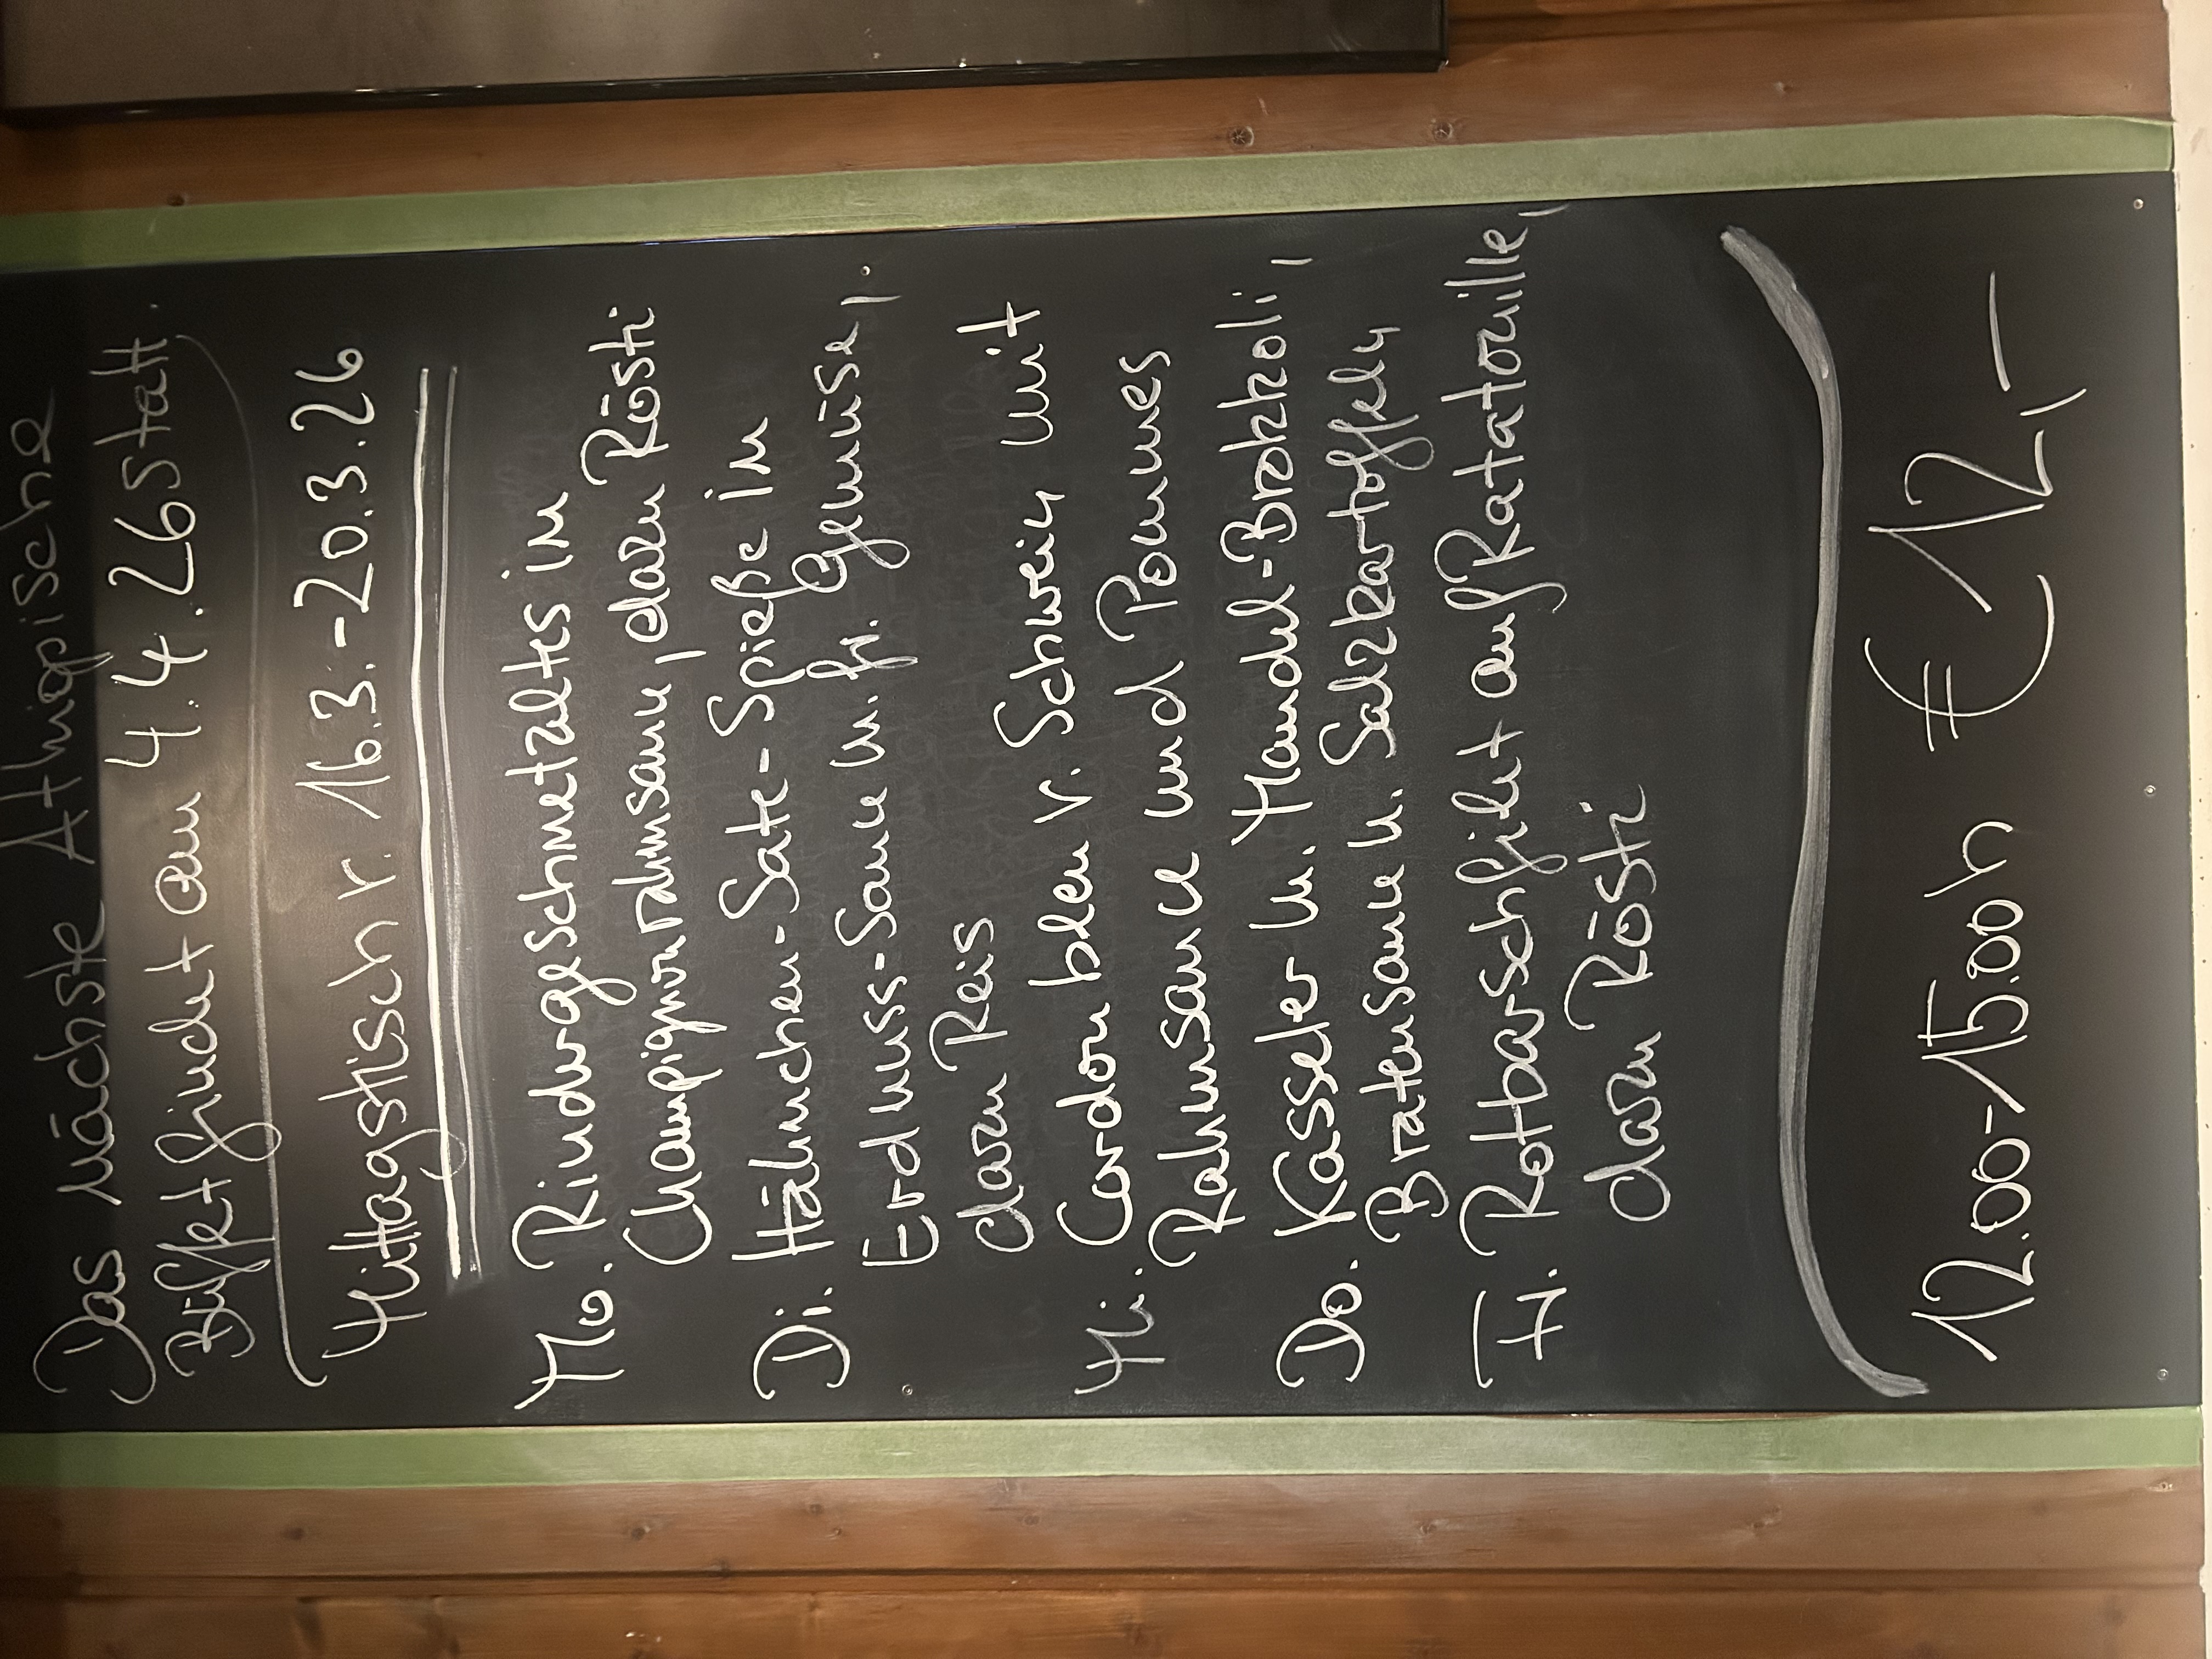 Das nächste Äthiopische
Büffet findet am 4.4.26 statt.
Mittagstisch v. 16.3.-20.3.26
Mo. Rindergeschnetzeltes in
Champignonrahmsauce, dazu Rösti
Di. Hähnchen-Sate-Spieße in
Erdnuss-Sauce m. fr. Gemüse,
dazu Reis
Mi. Cordon bleu v. Schwein mit
Rahmsauce und Pommes
Do. Kasseler m. Mandel-Brokkoli,
Bratensauce u. Salzkartoffeln
Fr. Rotbarschfilet auf Ratatouille,
dazu Rösti
12.00-15.00h € 12,-